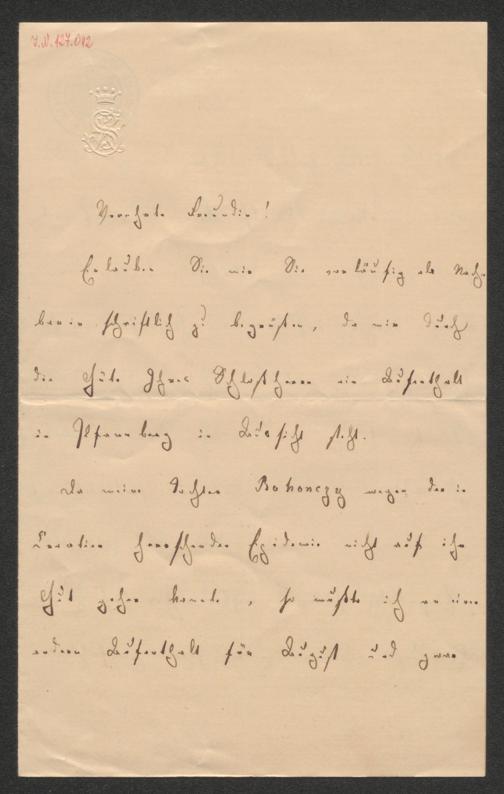 J.N. 127.012
Verehrte Freundin!
Erlauben Sie mir Sie vorläufig als Nach-
barin schriftlich zu begrüßen, da mir durch
die Güte Ihres Schloßherrn ein Aufenthalt
in Pfannberg in Aussicht steht.
Da meine Tochter Bakonczy wegen der in
Kroatien herrschenden Epidemie nicht auf ihr
Gut gehen konnte, so mußte ich an einen
andern Aufenthalt für August und zwar